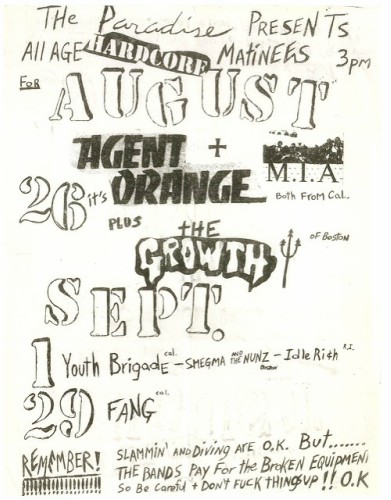 The Paradise PRESENTS
All AGE HARDCORE MATiNEES 3pm
FOR AUGUST
26 it's AGENT ORANGE + M.I.A
Both From Cal.
PLUS
THE GROWTH OF BOSTON
SEPT.
1 Youth Brigade cal. - SMEGMA AND THE NUNZ Boston - Idle Rich R.I.
29 FANG cal.
REMEMBER!
SLAMMIN' AND DIVING ARE O.K. But.......
THE BANDS PAY For the Broken EQUIPMENT
So Be Careful + Don't FUCK THINGS UP!! O.K